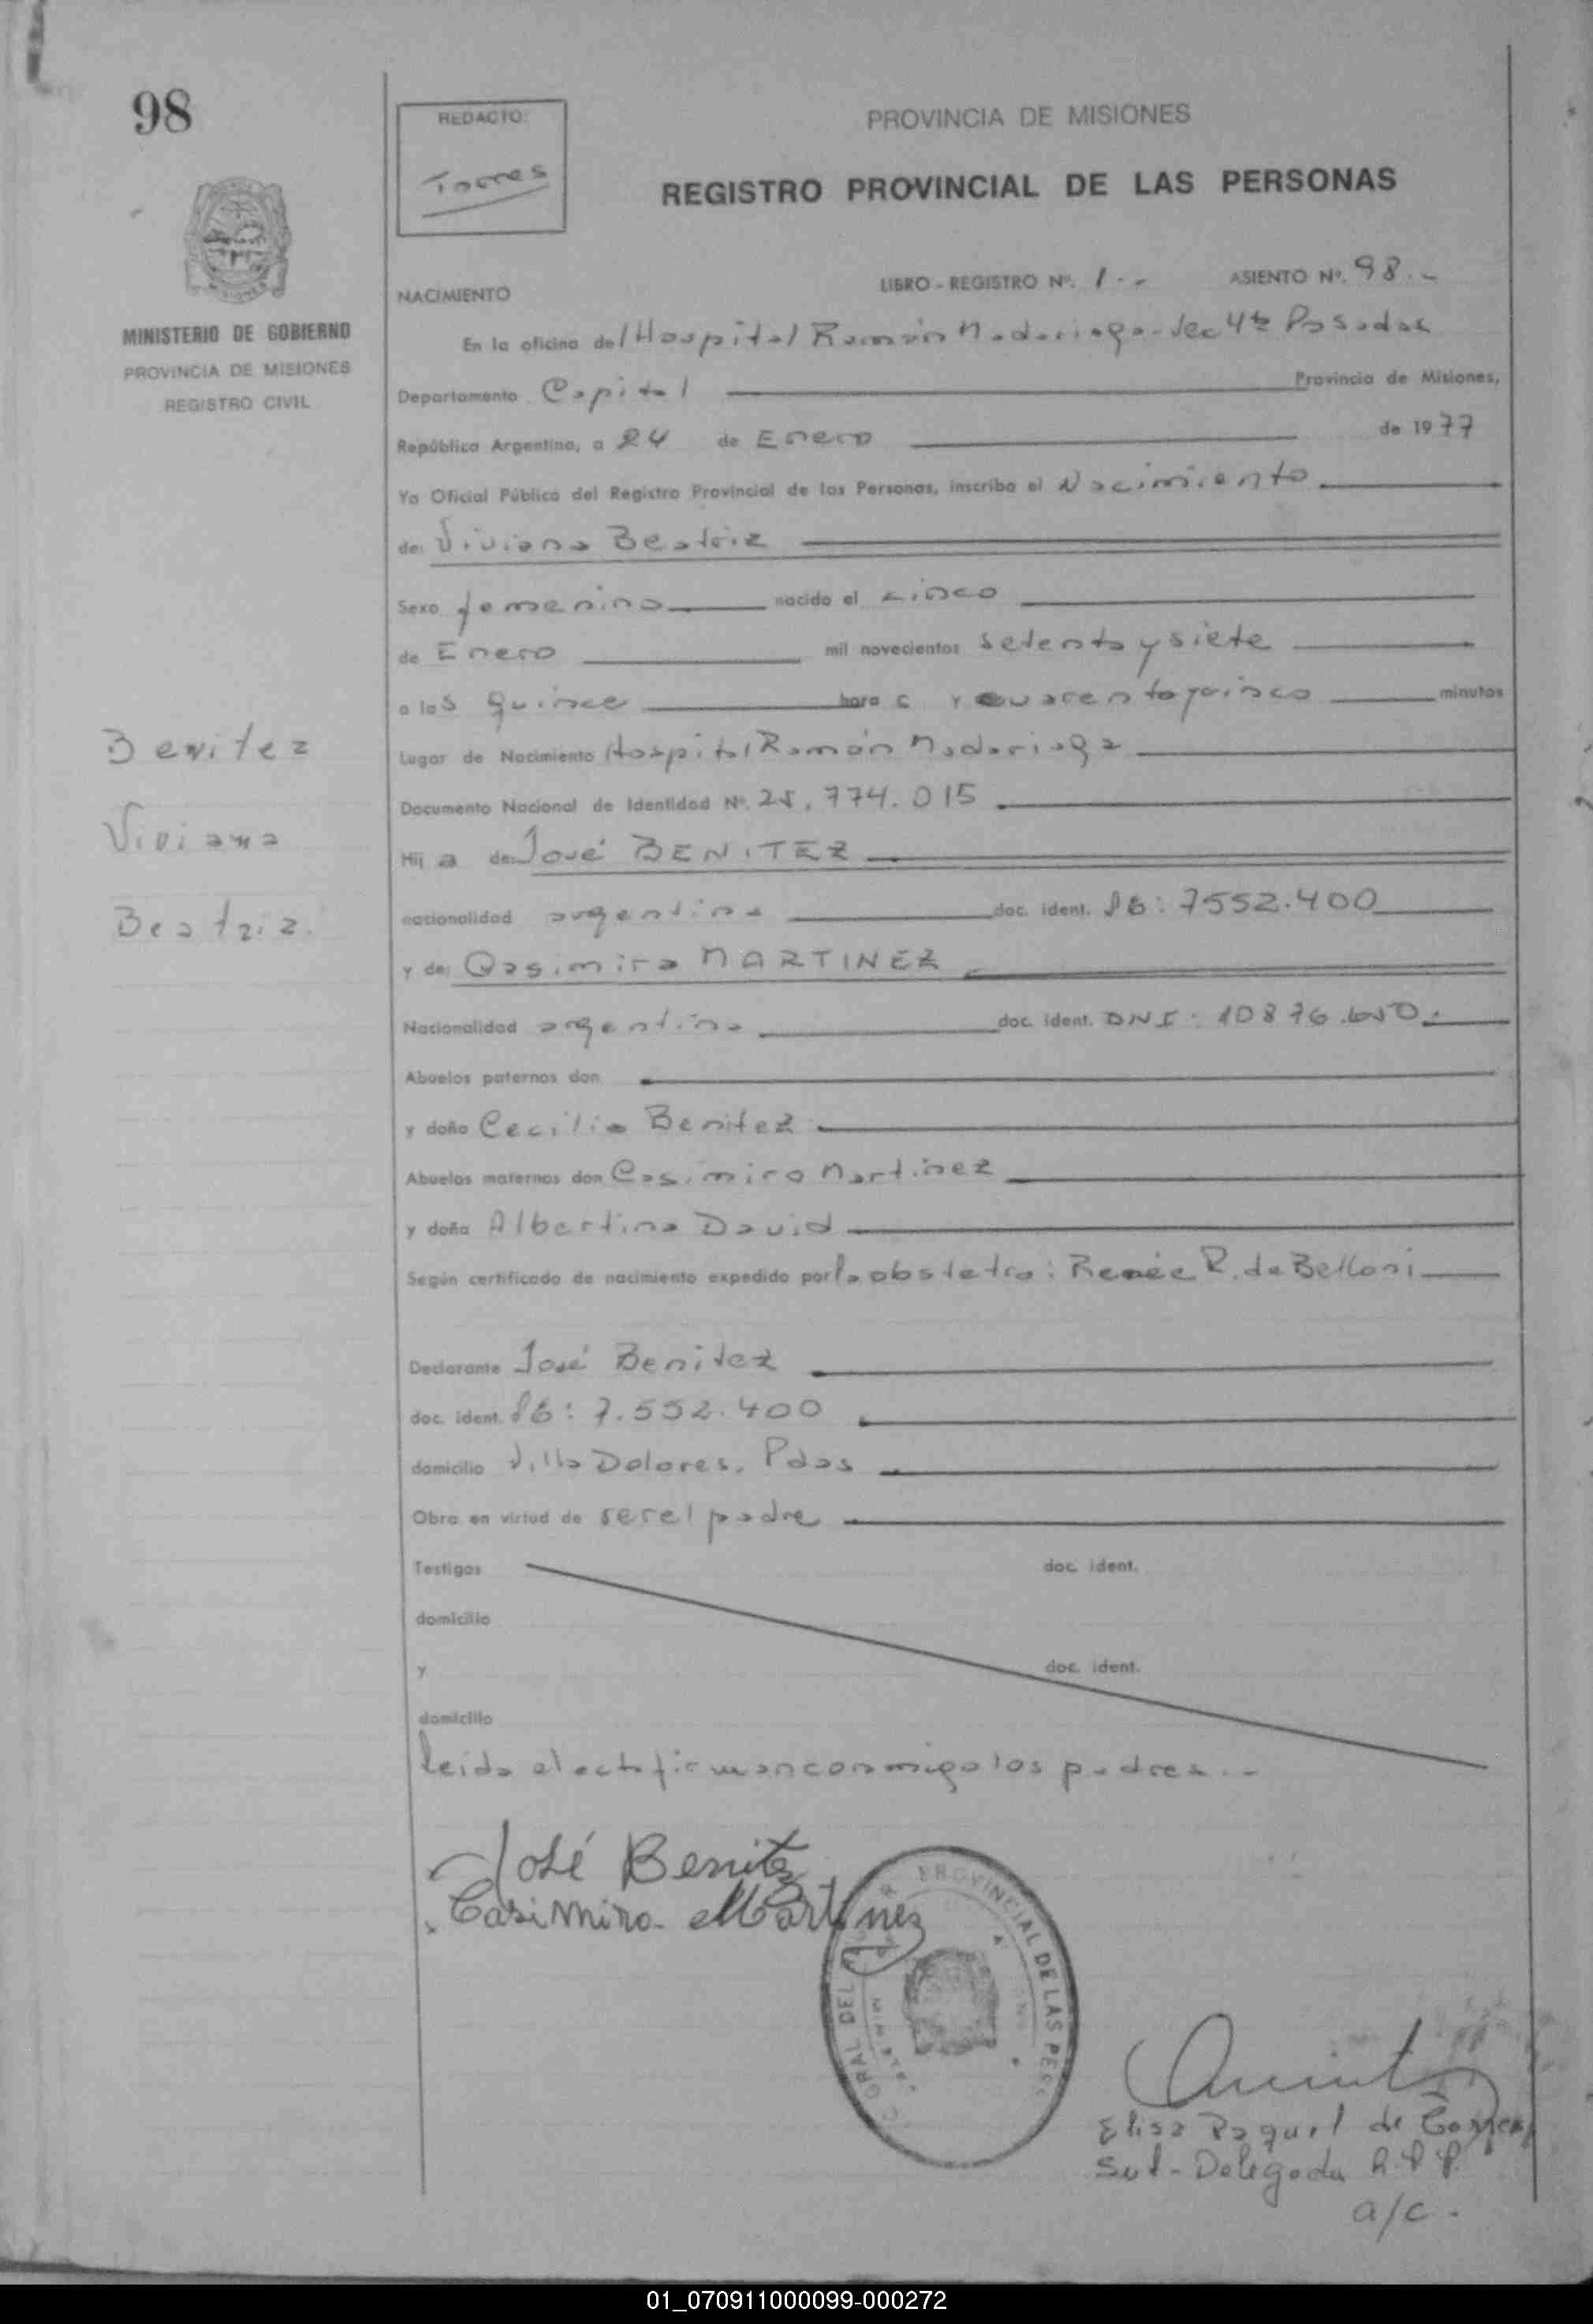 98
REDACTO:
Torres
PROVINCIA DE MISIONES
REGISTRO PROVINCIAL DE LAS PERSONAS
MINISTERIO DE GOBIERNO
PROVINCIA DE MISIONES
REGISTRO CIVIL
NACIMIENTO LIBRO - REGISTRO Nº. 1.- ASIENTO Nº. 98.-
En la oficina del Hospital Ramón Madariaga - Sec 4ta Posadas
Departamento Capital Provincia de Misiones,
República Argentina, a 24 de Enero de 1977
Yo Oficial Público del Registro Provincial de las Personas, inscribo el Nacimiento
de: Viviana Beatriz
Sexo femenino nacido el cinco
de Enero mil novecientos setenta y siete
a las quince hora s y cuarenta y cinco minutos
Lugar de Nacimiento Hospital Ramón Madariaga
Documento Nacional de Identidad Nº. 25.774.015
Hij a de: José BENITEZ
nacionalidad argentina doc. ident. 7552.400
y de: Casimira MARTINEZ
Nacionalidad argentina doc. ident. DNI: 10876.650.
Abuelos paternos don
y doña Cecilia Benitez
Abuelos maternos don Casimiro Martinez
y doña Albertina David
Según certificado de nacimiento expedido por la obstetra: Renée R. de Belloni
Declarante José Benitez
doc. ident. 7.552.400
domicilio Villa Dolores. Pdas
Obra en virtud de ser el padre
Testigos doc. ident.
domicilio
y doc. ident.
domicilio
leida el acta firman conmigo los padres.-
Benitez
Viviana
Beatriz.
José Benitez
Casimira Martinez
GRAL DEL PROVINCIAL DE LAS PERS
Elisa Raquel de
Sub-Delegada R.P.P.
a/c.
01_070911000099-000272